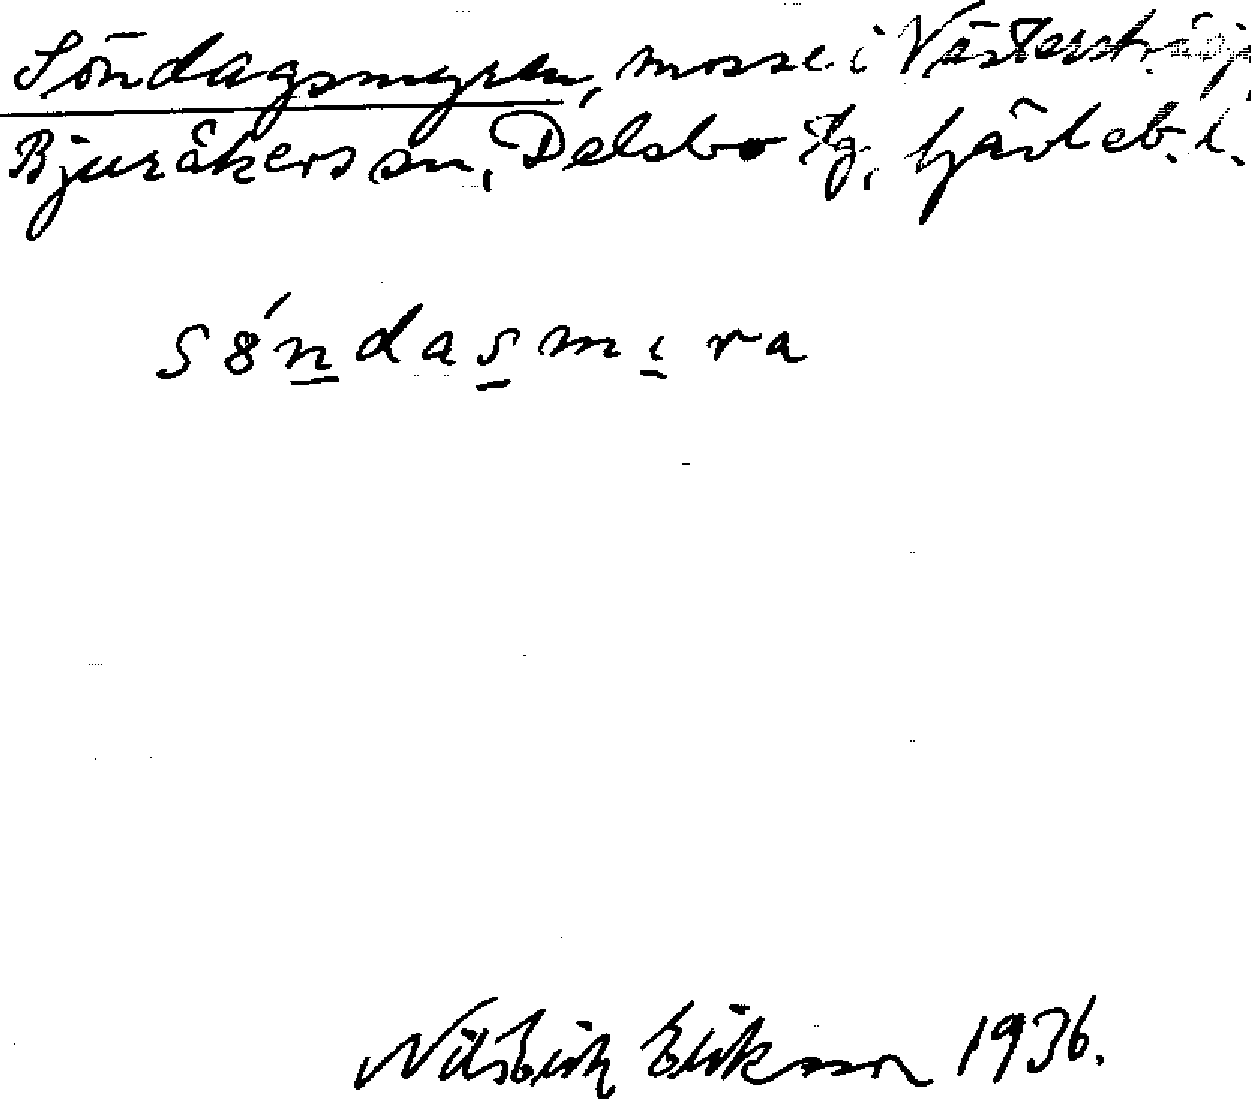 Söndagsmyren, mosse i Västerstråsjö
Bjuråkers sn, Delsbo tg, Gävleb. l.
s8́ndasmıra
Nils Erik Eriksson 1936.